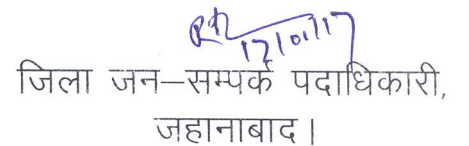 17/01/17
जिला जन–सम्पर्क पदाधिकारी,
जहानाबाद।